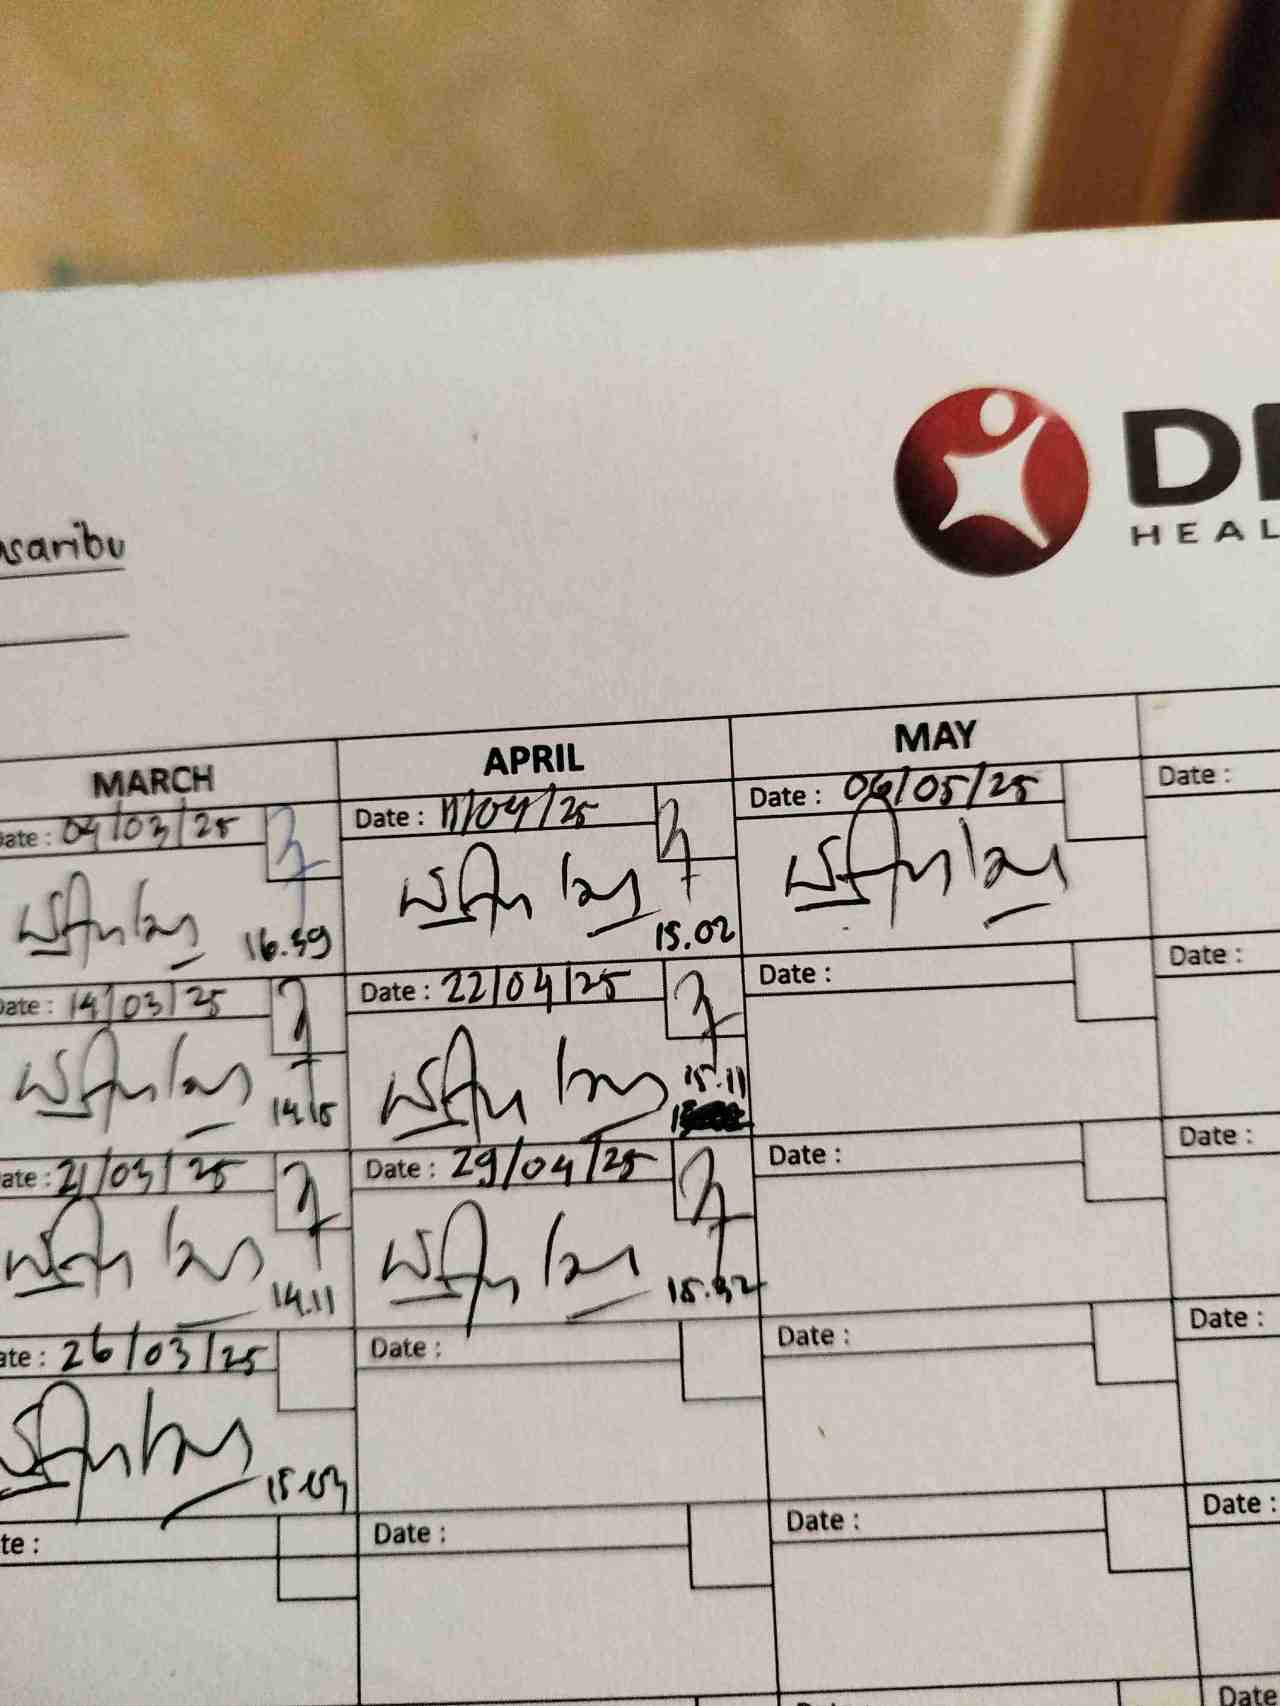 DI
HEAL
saribu
MARCH APRIL MAY
ate : 04/03/25 Date : 11/04/25 Date : 06/05/25 Date :
16.39 15.02
ate : 14/03/25 Date : 22/04/25 Date : Date :
14.15 15.11
ate : 21/03/25 Date : 29/04/25 Date : Date :
14.11 15.32
ate : 26/03/25 Date : Date : Date :
15.03
te : Date : Date : Date :
Date